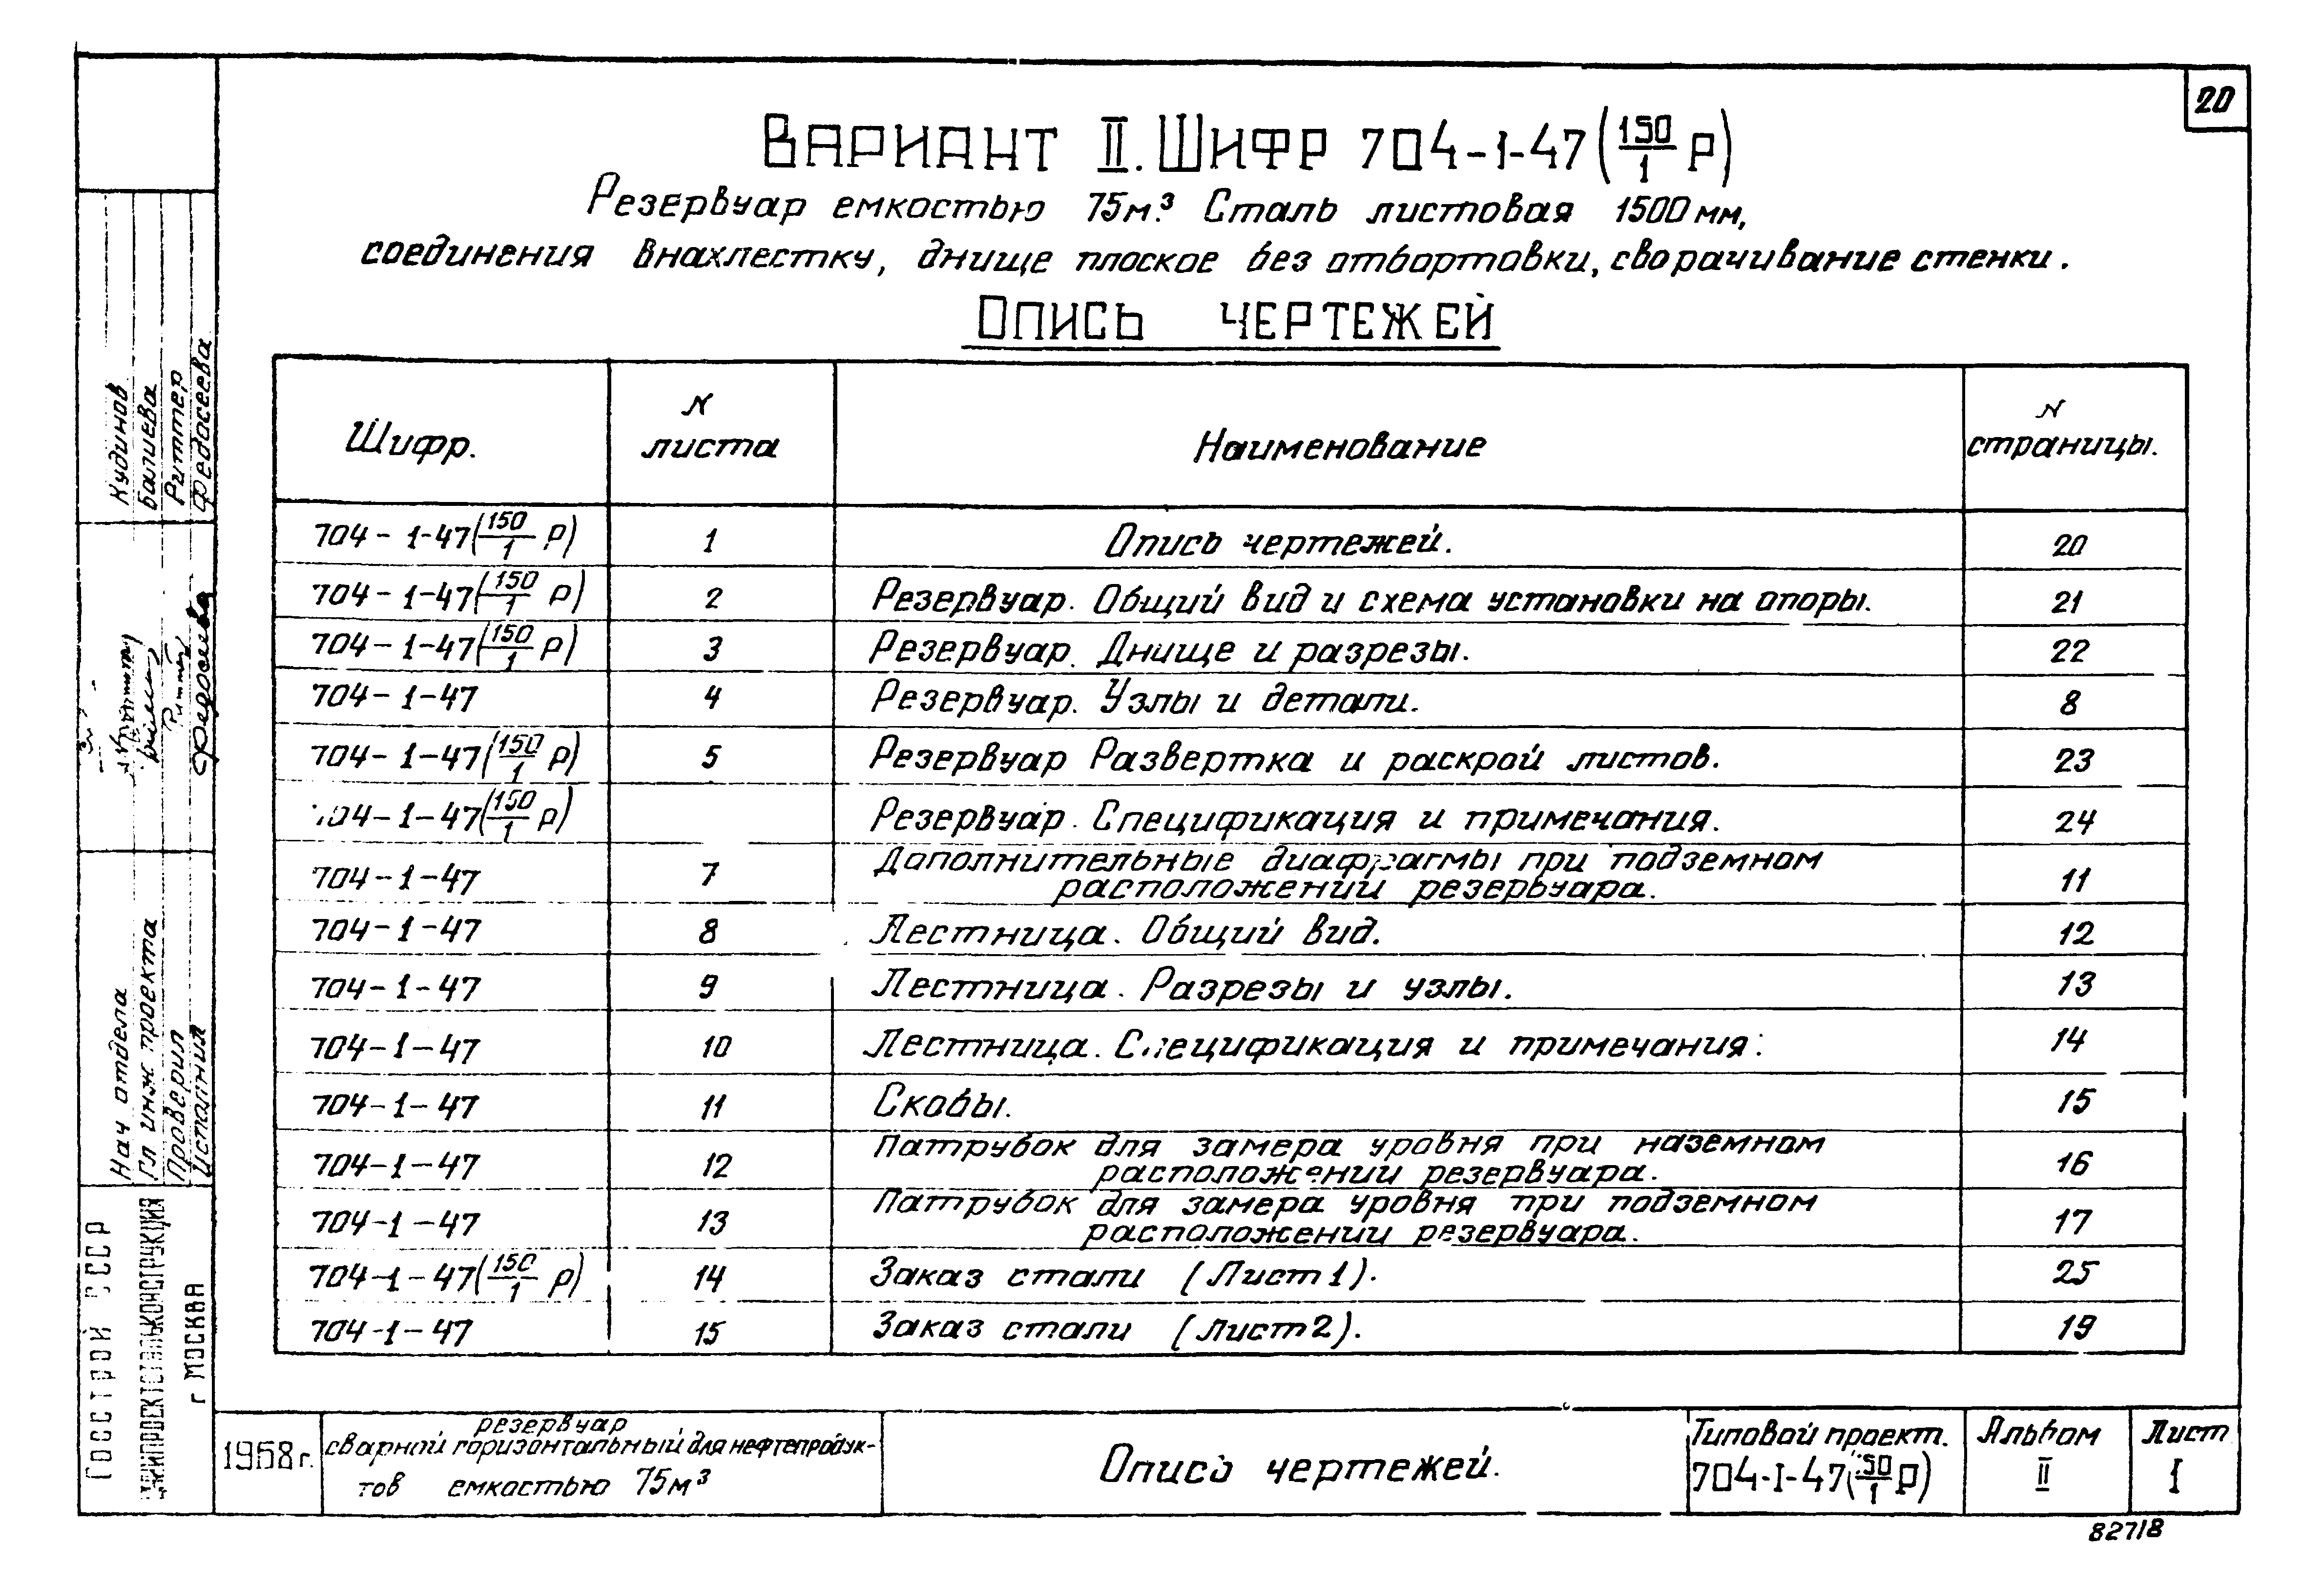 20
ВАРИАНТ II. ШИФР 704-1-47(150/1 Р)
Резервуар емкостью 75м.³ Сталь листовая 1500мм,
соединения внахлестку, днище плоское без отбортовки, сворачивание стенки.
ОПИСЬ ЧЕРТЕЖЕЙ
Шифр. N листа Наименование N страницы.
704-1-47(150/1 Р) 1 Опись чертежей. 20
704-1-47(150/1 Р) 2 Резервуар. Общий вид и схема установки на опоры. 21
704-1-47(150/1 Р) 3 Резервуар. Днище и разрезы. 22
704-1-47 4 Резервуар. Узлы и детали. 8
704-1-47(150/1 Р) 5 Резервуар Развертка и раскрой листов. 23
704-1-47(150/1 Р) Резервуар. Спецификация и примечания. 24
704-1-47 7 Дополнительные диафрагмы при подземном
расположении резервуара. 11
704-1-47 8 Лестница. Общий вид. 12
704-1-47 9 Лестница. Разрезы и узлы. 13
704-1-47 10 Лестница. Спецификация и примечания. 14
704-1-47 11 Скобы. 15
704-1-47 12 Патрубок для замера уровня при наземном
расположении резервуара. 16
704-1-47 13 Патрубок для замера уровня при подземном
расположении резервуара. 17
704-1-47(150/1 Р) 14 Заказ стали (Лист 1). 25
704-1-47 15 Заказ стали (лист 2). 19
Нач отдела Кудинов
Гл инж проекта
Проверил Риттер
Исполнил Федосеева
ГОССТРОЙ СССР
ЦНИИПРОЕКТСТАЛЬКОНСТРУКЦИЯ
г МОСКВА
1968г.
резервуар
сварной горизонтальный для нефтепродук-
тов емкостью 75м³
Опись чертежей.
Типовой проект.
704-I-47(150/1 Р)
Альбом
II
Лист
1
82718